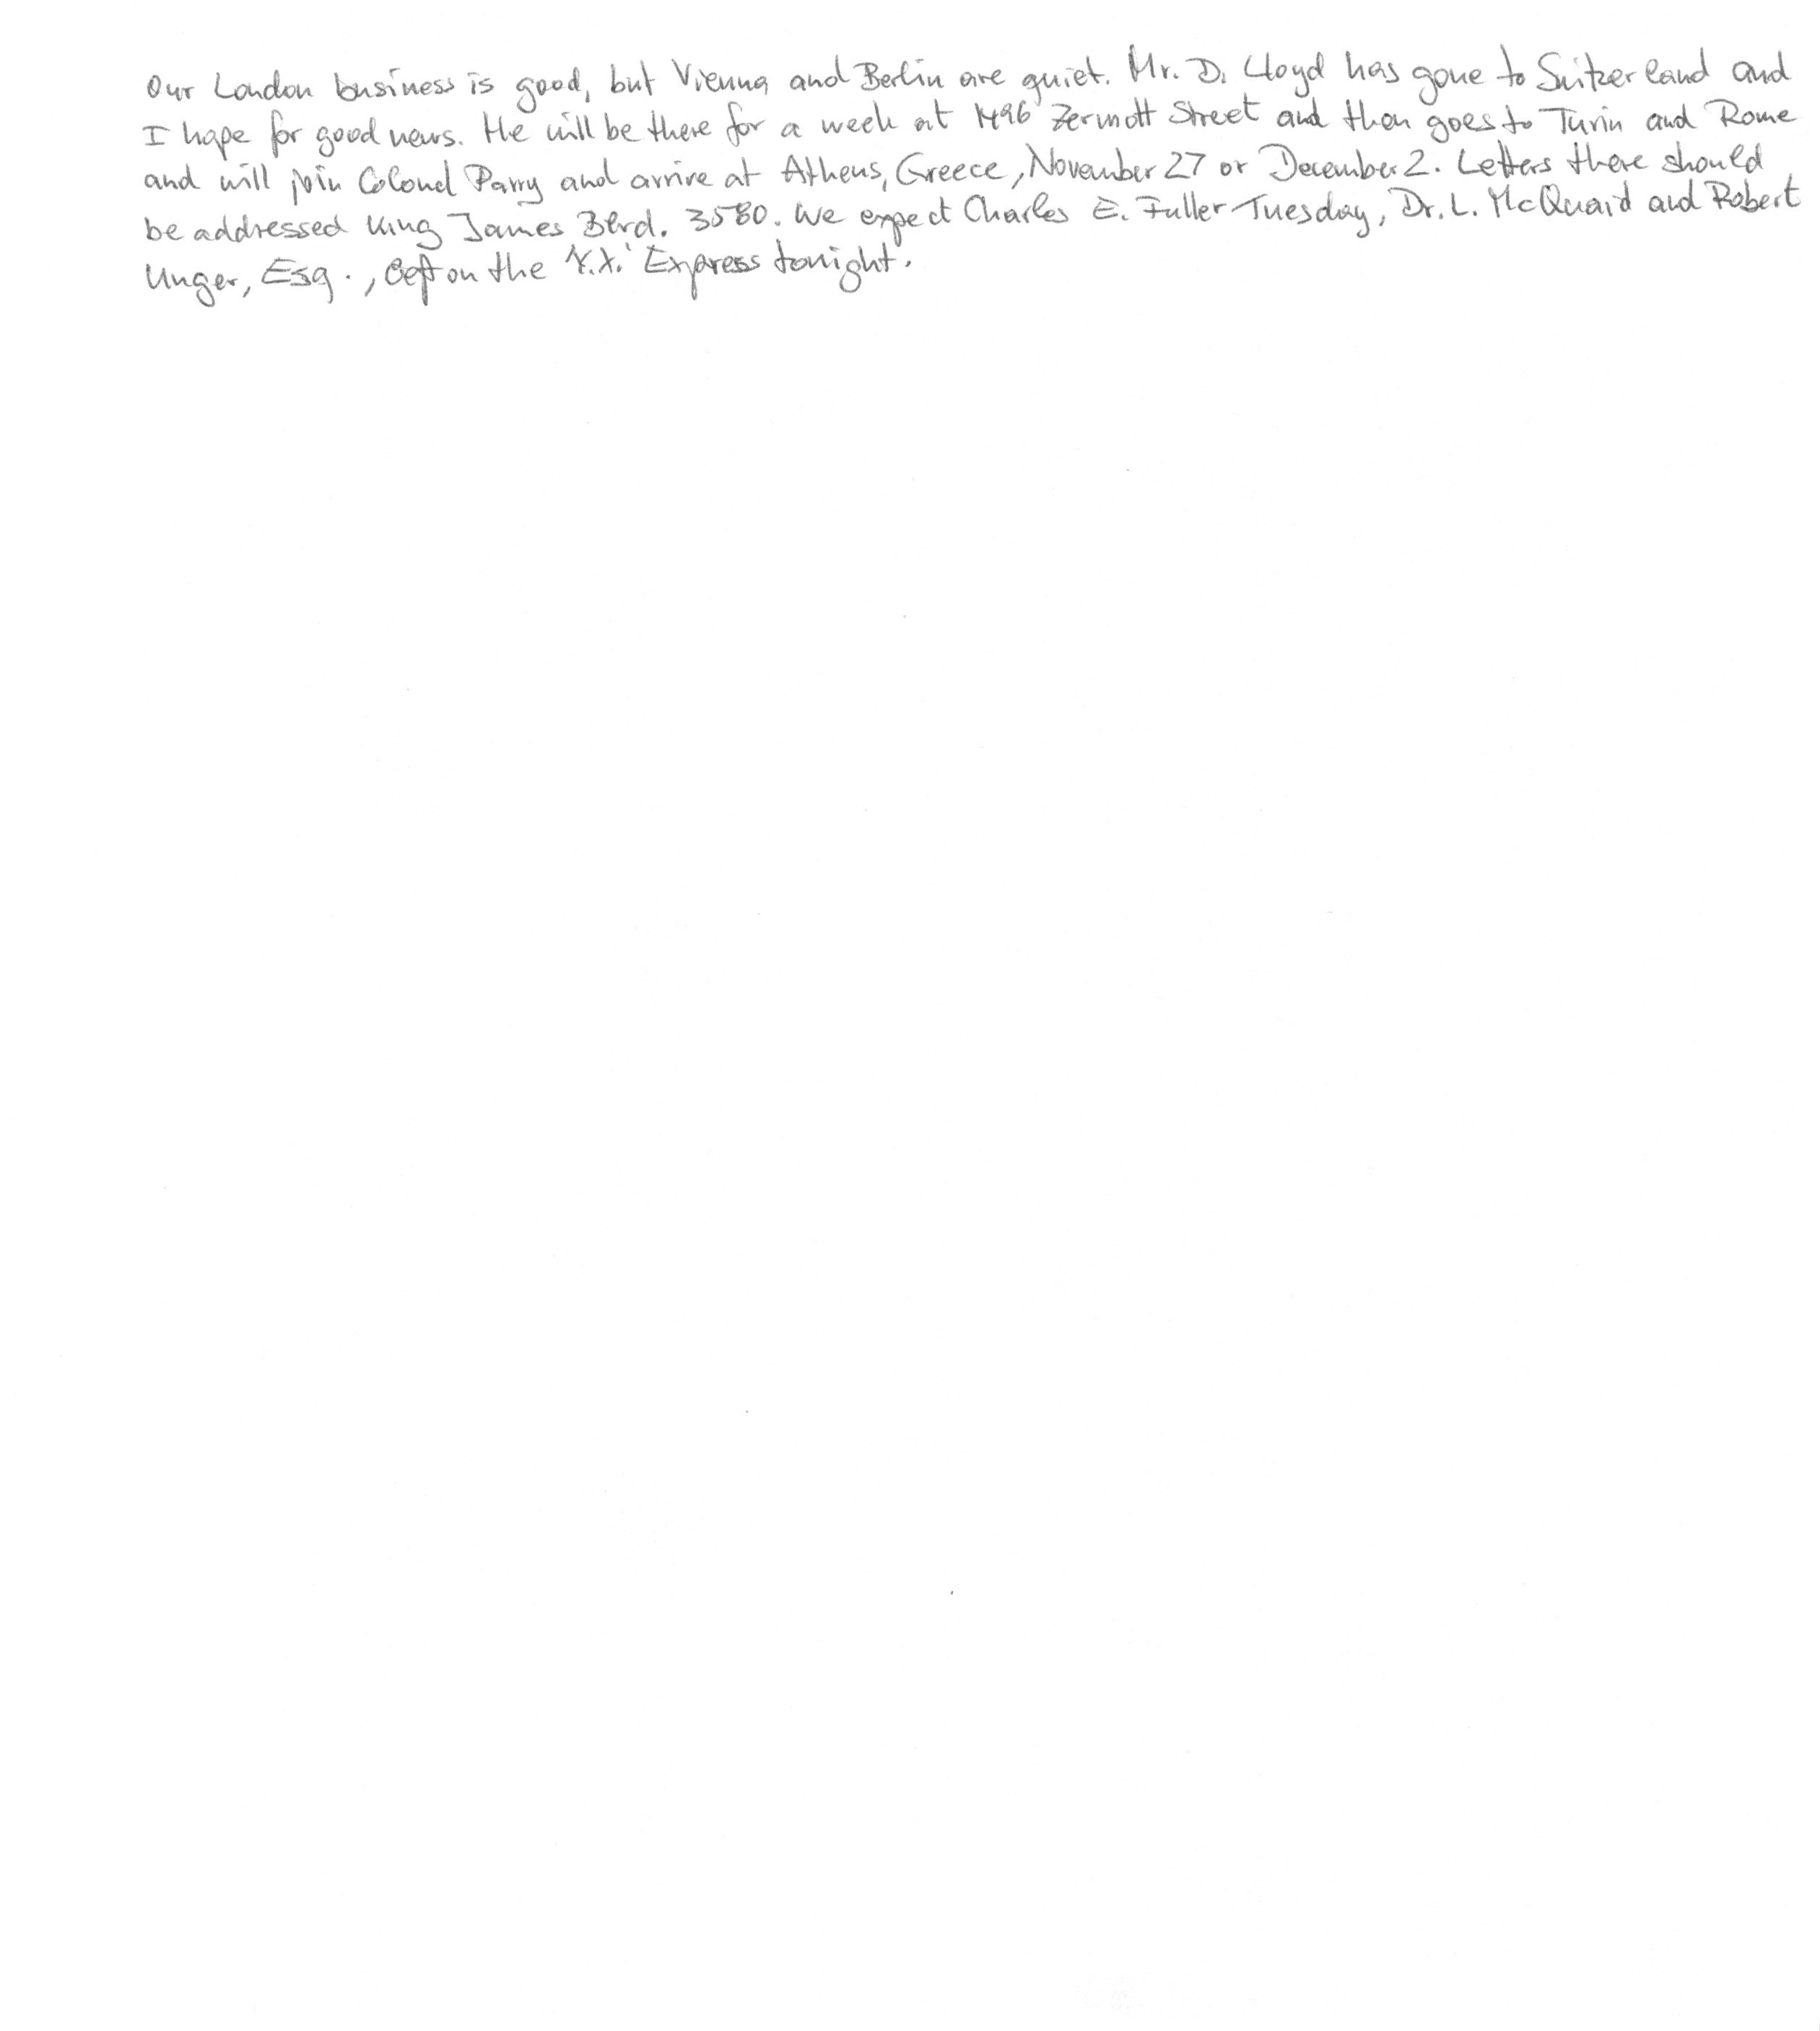 Our London business is good, but Vienna and Berlin are quiet. Mr. D. Lloyd has gone to Switzerland and
I hope for good news. He will be there for a week at 1496 Zermott Street and then goes to Turin and Rome
and will join Colonel Parry and arrive at Athens, Greece, November 27 or December 2. Letters there should
be addressed King James Blvd. 3580. We expect Charles E. Fuller Tuesday, Dr. L. McQuaid and Robert
Unger, Esq., left on the Express tonight.